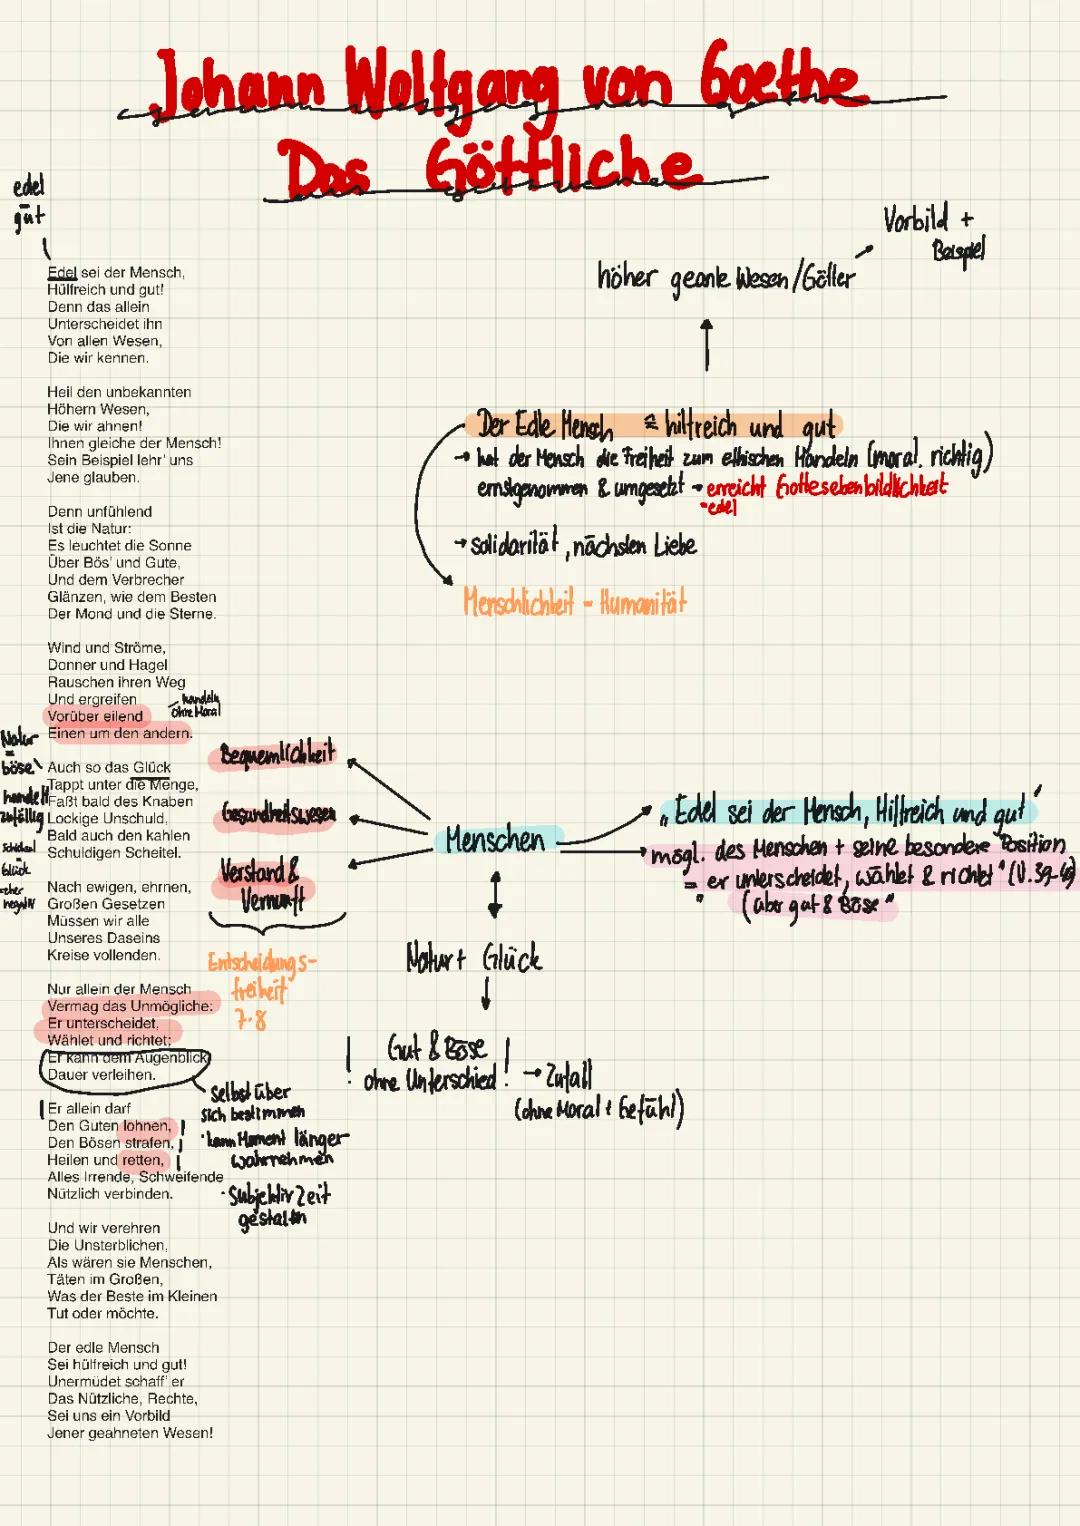 Johann Wolfgang von Goethe
Das Göttliche
edel
gut
Edel sei der Mensch,
Hülfreich und gut!
Denn das allein
Unterscheidet ihn
Von allen Wesen,
Die wir kennen.
Heil den unbekannten
Höhern Wesen,
Die wir ahnen!
Ihnen gleiche der Mensch!
Sein Beispiel lehr' uns
Jene glauben.
Denn unfühlend
Ist die Natur:
Es leuchtet die Sonne
Über Bös' und Gute,
Und dem Verbrecher
Glänzen, wie dem Besten
Der Mond und die Sterne.
Wind und Ströme,
Donner und Hagel
Rauschen ihren Weg
Und ergreifen
Vorüber eilend
Einen um den andern.
handeln
ohne Moral
Natur
=
böse
handelt
zufällig
Schicksal
Glück
eher
negativ
Auch so das Glück
Tappt unter die Menge,
Faßt bald des Knaben
Lockige Unschuld,
Bald auch den kahlen
Schuldigen Scheitel.
Nach ewigen, ehrnen,
Großen Gesetzen
Müssen wir alle
Unseres Daseins
Kreise vollenden.
Nur allein der Mensch
Vermag das Unmögliche:
Er unterscheidet,
Wählet und richtet;
Er kann dem Augenblick
Dauer verleihen.
Er allein darf
Den Guten lohnen,
Den Bösen strafen,
Heilen und retten,
Alles Irrende, Schweifende
Nützlich verbinden.
Selbst über
sich bestimmen
· kann Moment länger
wahrnehmen
· Subjektiv Zeit
gestalten
Und wir verehren
Die Unsterblichen,
Als wären sie Menschen,
Täten im Großen,
Was der Beste im Kleinen
Tut oder möchte.
Der edle Mensch
Sei hülfreich und gut!
Unermüdet schaff' er
Das Nützliche, Rechte,
Sei uns ein Vorbild
Jener geahneten Wesen!
Vorbild +
Beispiel
höher geahnte Wesen/Götter
Der Edle Mensch = hilfreich und gut
→ hat der Mensch die Freiheit zum ethischen Handeln (moral. richtig)
ernstgenommen & umgesetzt → erreicht Gottesebenbildlichkeit
-edel
→ solidarität, nächsten Liebe
Menschlichkeit - Humanität
Bequemlichkeit
Gesundheitswesen
Verstand &
Vernunft
Entscheidungs-
freiheit
7-8
Menschen
„Edel sei der Mensch, Hilfreich und gut"
mögl. des Menschen + seine besondere Position
= er unterscheidet, wählet & richtet" (V. 39-40)
"(über gut & Böse"
Natur + Glück
! Gut & Böse !
ohne Unterschied → Zufall
(ohne Moral & Gefühl)